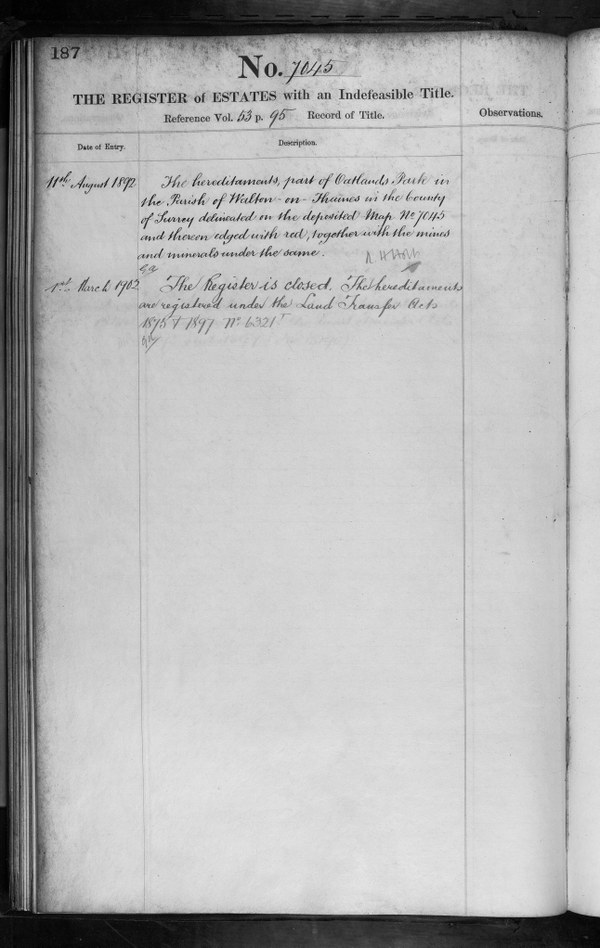 187
No. 7045
THE REGISTER of ESTATES with an Indefeasible Title.
Reference Vol. 53 p. 95 Record of Title.
Observations.
Date of Entry.
Description.
11th August 1892
The hereditaments, part of Oatlands Park in
the Parish of Walton-on-Thames in the County
of Surrey delineated on the deposited Map No 7045
and thereon edged with red, together with the mines
and minerals under the same.
1st March 1902
The Register is closed. The hereditaments
are registered under the Land Transfer Acts
1875 & 1897 No 6321